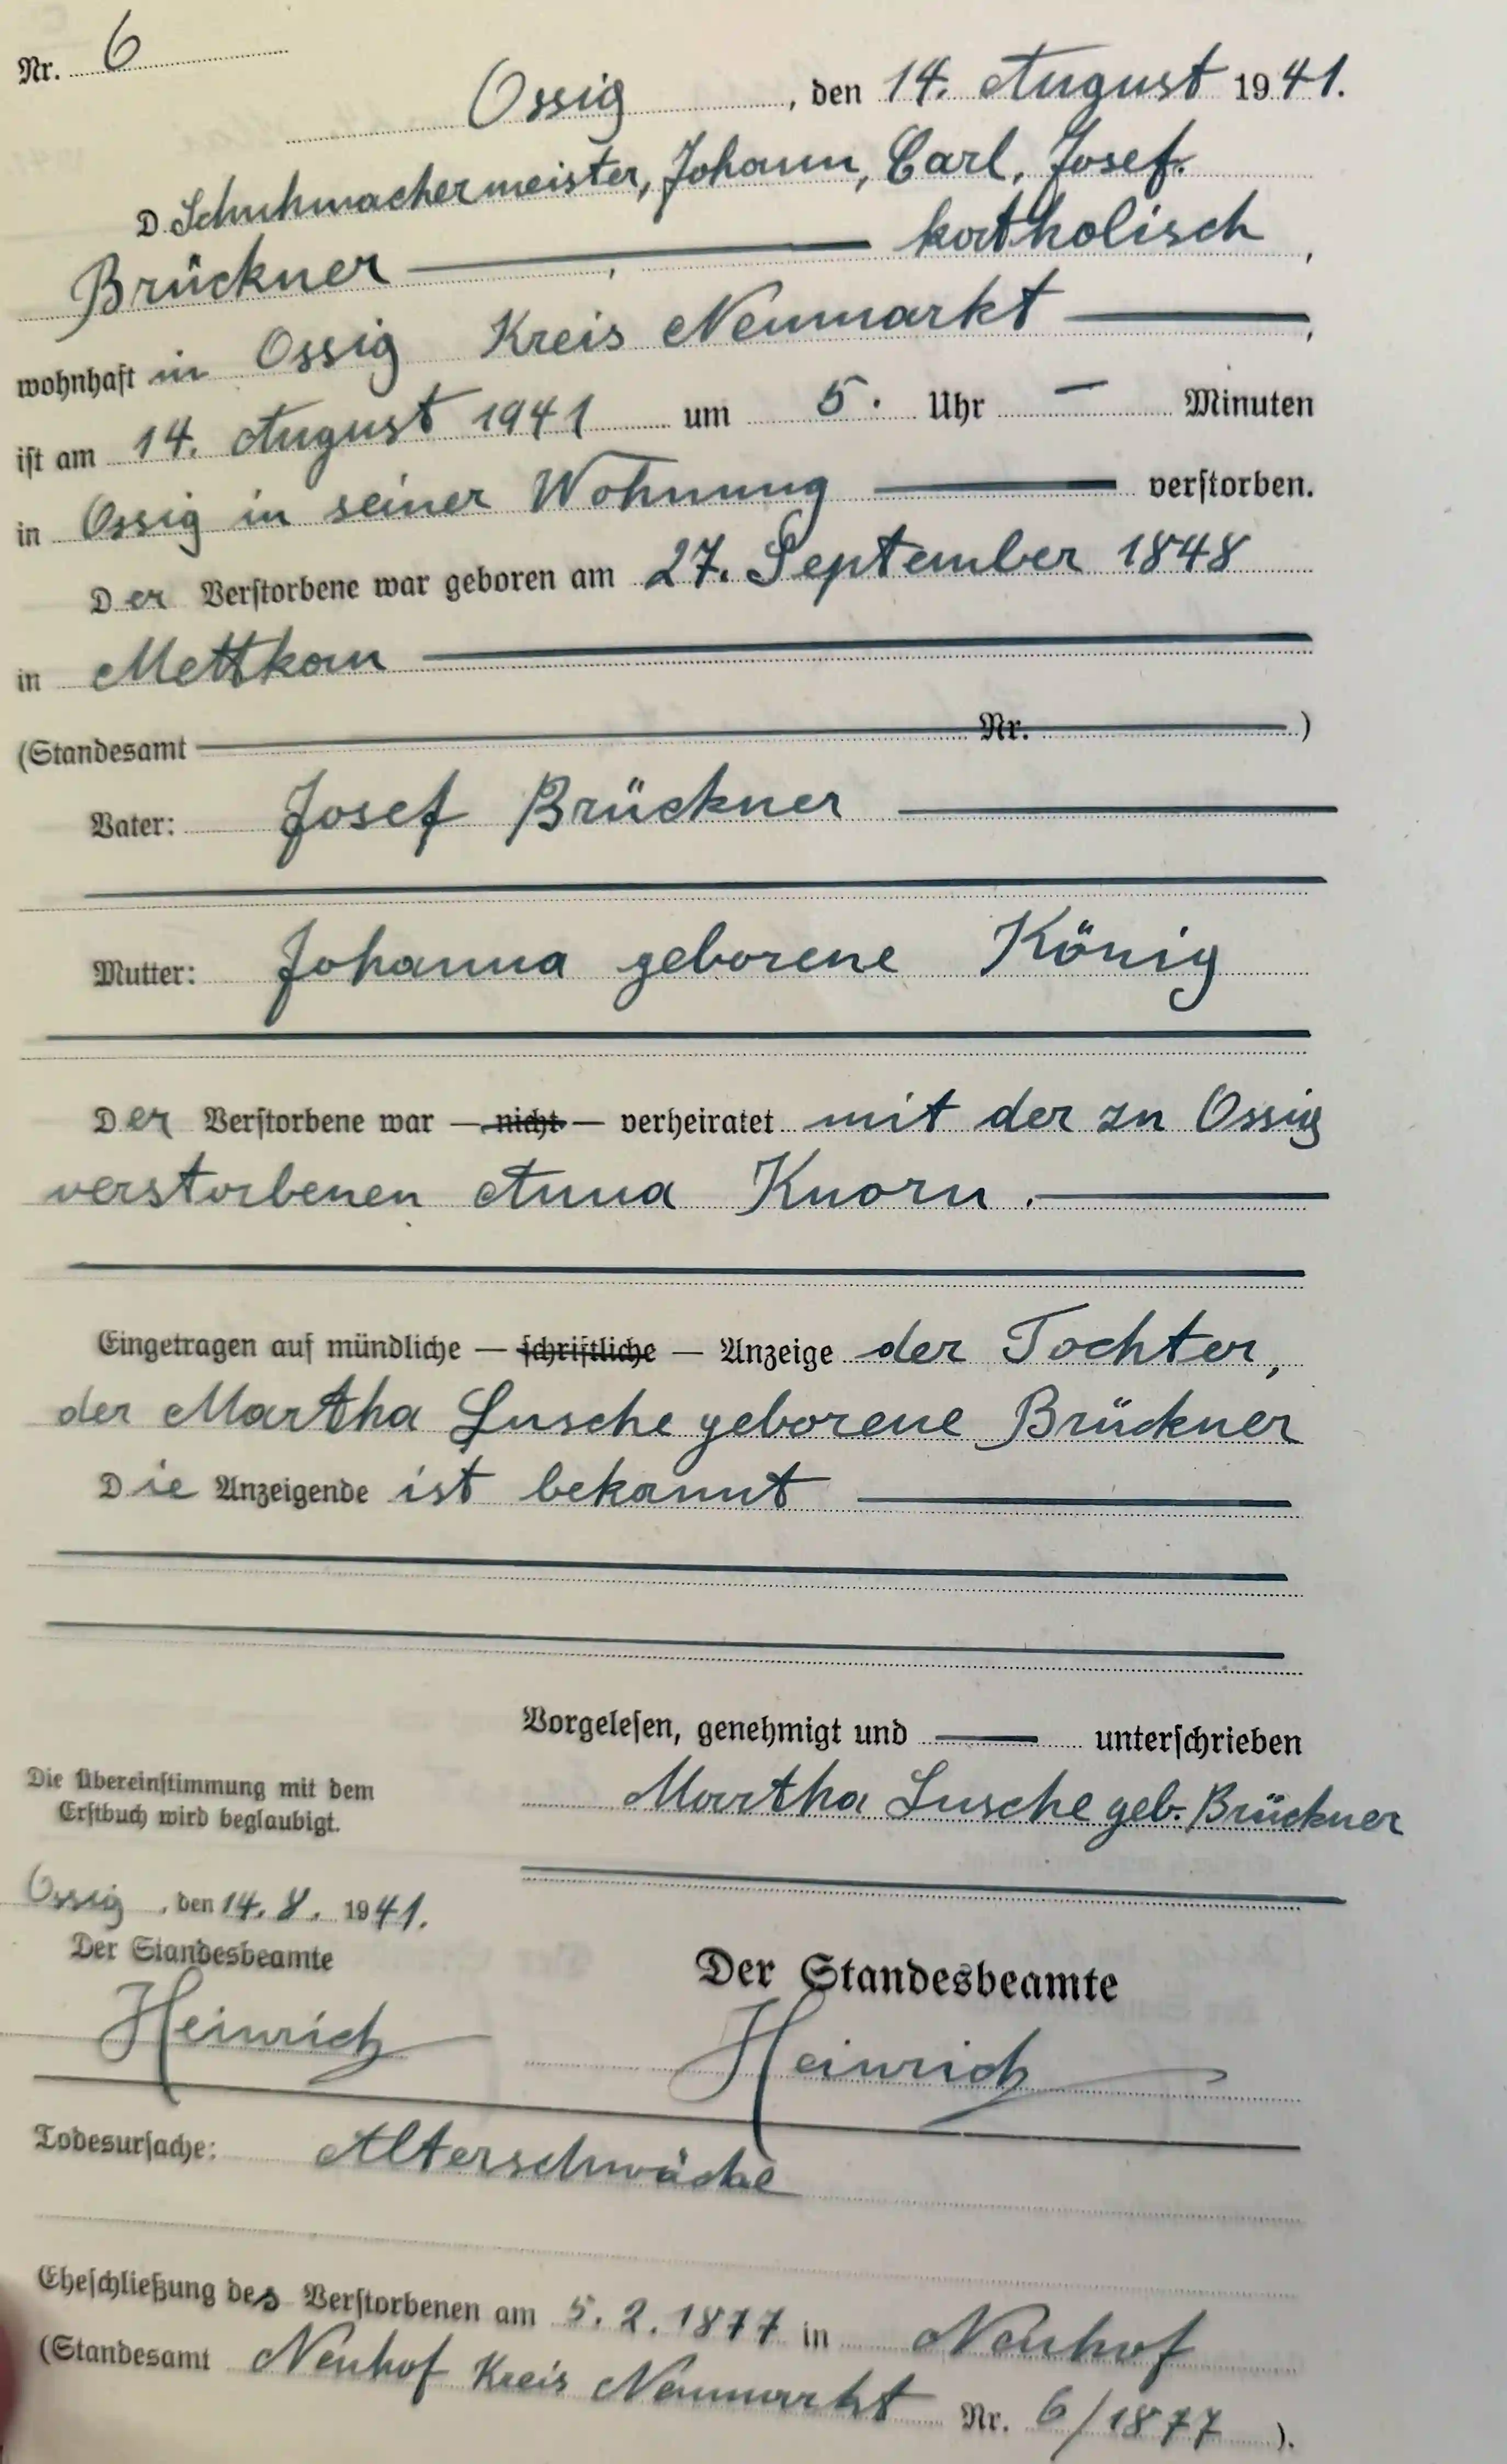 Nr. 6
Ossig, den 14. August 1941.
D. Schuhmachermeister, Johann, Carl, Josef.
Brückner — katholisch,
wohnhaft in Ossig Kreis Neumarkt —,
ist am 14. August 1941 um 5. Uhr — Minuten
in Ossig in seiner Wohnung — verstorben.
Der Verstorbene war geboren am 27. September 1848
in Mettkau —
(Standesamt — Nr. —)
Vater: Josef Brückner —
Mutter: Johanna geborene König
Der Verstorbene war — nicht — verheiratet mit der zu Ossig
verstorbenen Anna Knorn. —
Eingetragen auf mündliche — schriftliche — Anzeige der Tochter,
der Martha Lusche geborene Brückner
Die Anzeigende ist bekannt —
Vorgelesen, genehmigt und — unterschrieben
Martha Lusche geb. Brückner
Die Übereinstimmung mit dem
Erstbuch wird beglaubigt.
Ossig, den 14. 8. 1941.
Der Standesbeamte
Heinrich
Der Standesbeamte
Heinrich
Todesursache: Alterschwäche
Eheschließung des Verstorbenen am 5. 2. 1877 in Neuhof
(Standesamt Neuhof Kreis Neumarkt Nr. 6/1877).